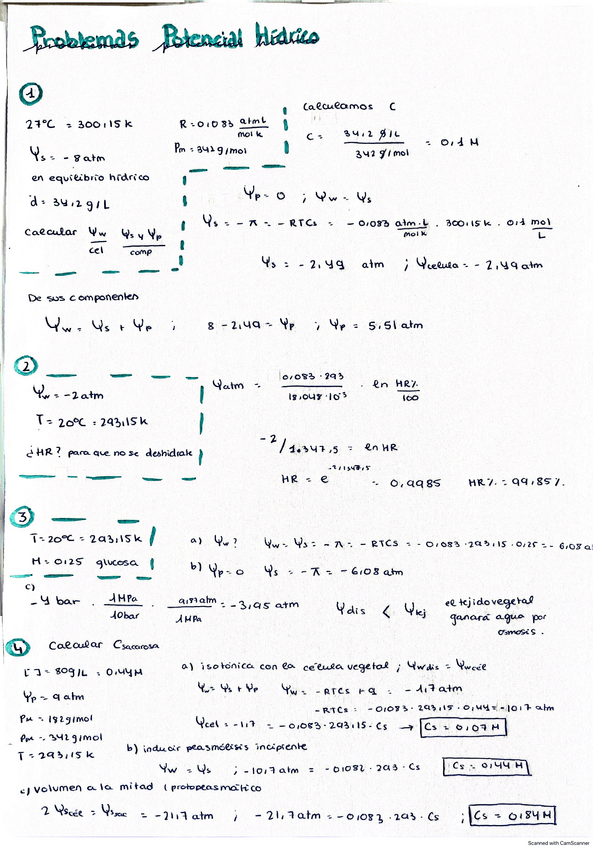 Problemas Potencial Hídrico
1
27ºC = 300,15 K
R = 0,083 atm L / mol K
Ψs = - 8 atm
Pm = 342 g/mol
en equilibrio hídrico
d = 34,2 g/L
calcular Ψw cel Ψs y Ψp comp
Calculamos C
C = 34,2 g/L / 342 g/mol = 0,1 M
Ψp = 0 ; Ψw = Ψs
Ψs = - π = - RTCs = - 0,083 atm·L / mol K · 300,15 K · 0,1 mol / L
Ψs = - 2,49 atm ; Ψcelula = - 2,49 atm
De sus componentes
Ψw = Ψs + Ψp ; 8 - 2,49 = Ψp ; Ψp = 5,51 atm
2
Ψw = -2 atm
T = 20ºC = 293,15 K
¿HR? para que no se deshidrate
Ψatm = 0,083 · 293 / 18,048 · 10⁻³ · ln HR% / 100
-2/1.347,5 = ln HR
HR = e^-2/1347,5 = 0,9985 HR% = 99,85%
3
T = 20ºC = 293,15 K
M = 0,25 glucosa
a) Ψw? Ψw = Ψs = - π = - RTCs = - 0,083 · 293,15 · 0,25 = - 6,08 a
b) Ψp = 0 Ψs = - π = - 6,08 atm
c)
-4 bar · 1 MPa / 10 bar · 9,87 atm / 1 MPa = - 3,95 atm
Ψdis < Ψtej
el tejido vegetal
ganará agua por
osmosis.
4 Calcular Csacarosa
[ ] = 80 g/L = 0,44 M
Ψp = 9 atm
Pm = 182 g/mol
Pm = 342 g/mol
T = 293,15 K
a) isotónica con la célula vegetal ; Ψwdis = Ψwcél
Ψw = Ψs + Ψp Ψw = - RTCs + 9 = - 1,7 atm
- RTCs = - 0,083 · 293,15 · 0,44 = - 10,7 atm
Ψcel = - 1,7 = - 0,083 · 293,15 · Cs → Cs = 0,07 M
b) inducir plasmólisis incipiente
Ψw = Ψs ; - 10,7 atm = - 0,082 · 293 · Cs Cs = 0,44 M
c) volumen a la mitad (protoplasmático
2 Ψscél = Ψssac = - 21,7 atm ; - 21,7 atm = - 0,083 · 293 · Cs ; Cs = 0,84 M
Scanned with CamScanner